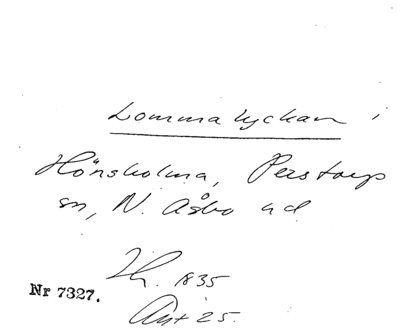 Lommalyckan i
Hönsholma, Perstorps
sn, N. Åsbo hd
Lh. 1835
Akt 25.
Nr 7327.